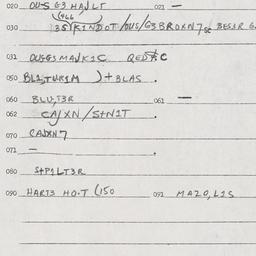 020 OUS G3 HAJLT 021 —
(466
030 135(K1NDOT/OUS/G3BROKN7
031 OUSG3MAJK1C QED C
050 BL1,TUR1M )+BLAS .
060 BLU,T3R 061 —
062 CAJXN/S+N1T .
070 CAJXN7
071 —
080 S+P1LT3R
090 HART3 HO.T (150 091 MAZO,L1S